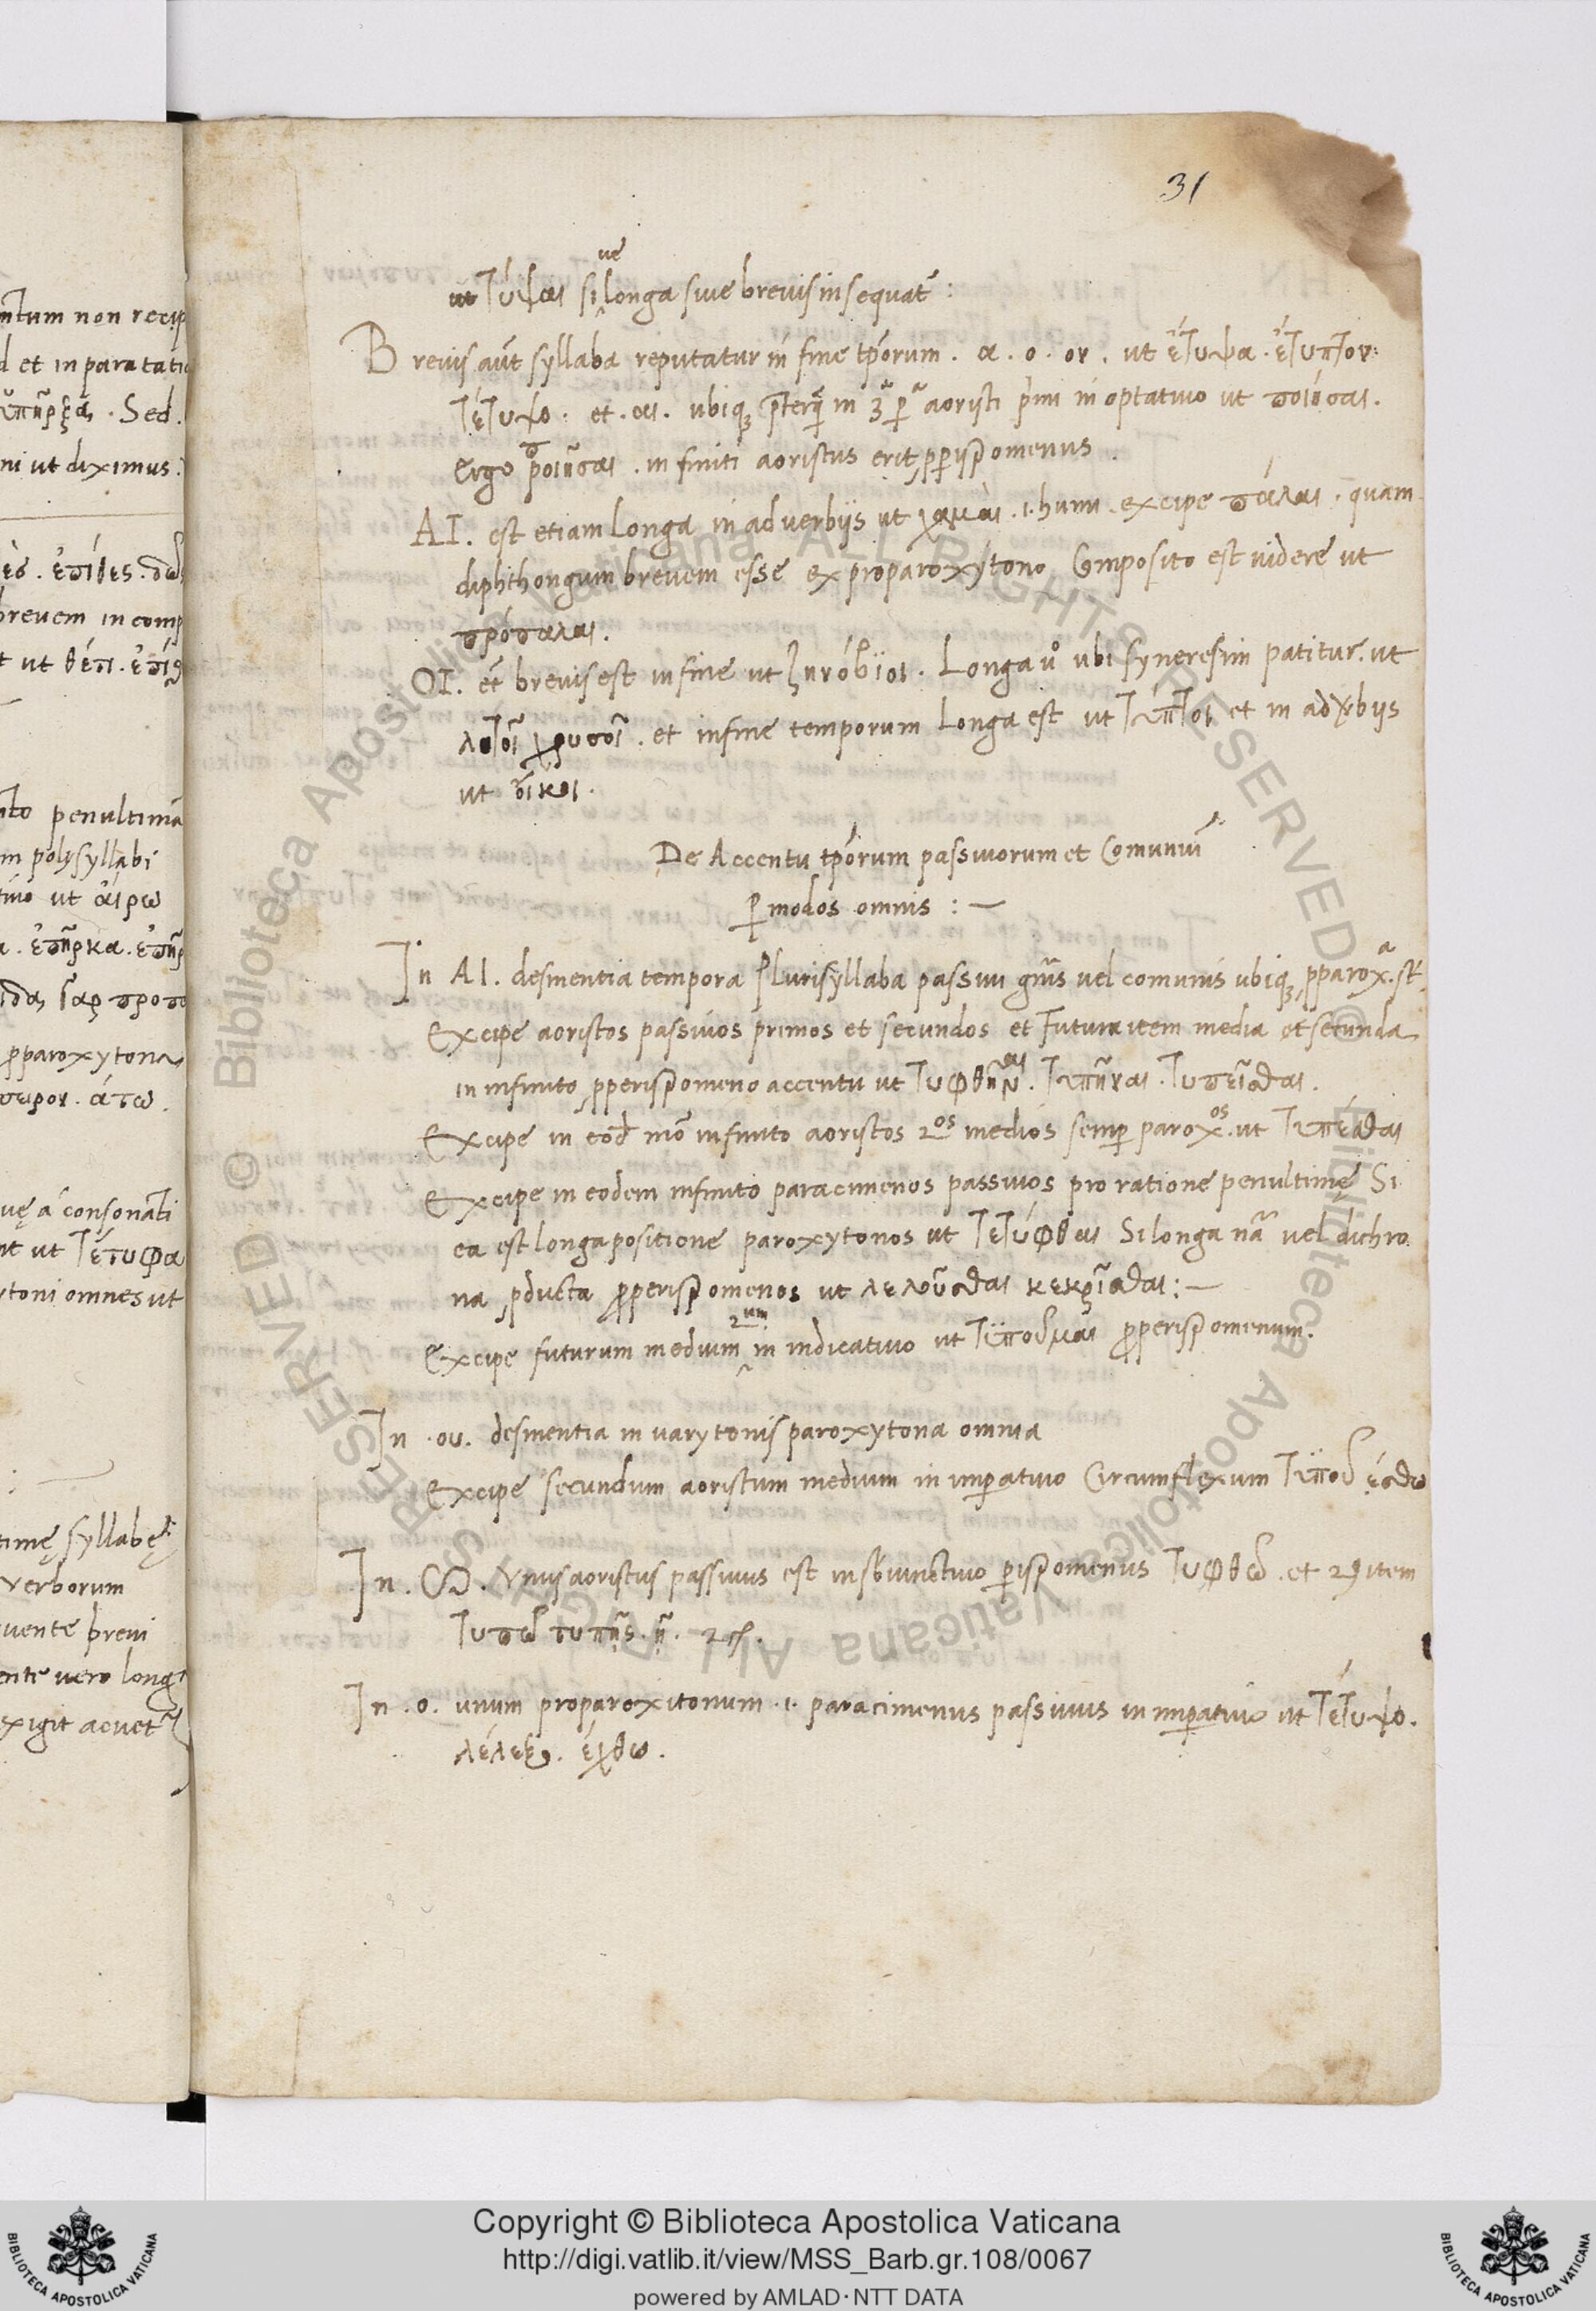 31
ut τύψαι si ve longa sive brevis insequat̃ :
Brevis aũt syllaba reputatur in fine tp̃orum . α . ο . ον . ut ἔτυψα . ἔτυπτον
τέτυψο . et . αι . ubiq; p̃terq̃ in 3ª p̱ª aoristi p̃mi in optativo ut ποιήσαι .
Ergo ποιῆσαι . infiniti aoristus erit p̱p̱ispomenus .
AI . est etiam longa in adverbijs ut χαμαι . i . humi . excipe πάλαι . quam
diphthongum brevem esse ex proparoxytono Composito est videre ut
πρόπαλαι .
OI . et̃ brevis est in fine ut . Longa v° ubi syneresim patitur . ut
χρυσοῖ . et in fine temporum longa est ut τύπτοι et in adṽbijs
ut οἴκοι .
De Accentu tp̃orum passivorum et Comuniũ
p̱ modos omnis : —
In AI . desinentia tempora plurisyllaba passivi gñis vel comunis ubiq; p̱parox.ª st̃ .
Excipe aoristos passivos primos et secundos et Futura item media et secunda
in infinito p̱perispomeno accentu ut τυφθῆναι . τυπῆναι . τυπεῖσθαι .
Excipe in eod̃ mõ infinito aoristos 2os medios semp̱ parox.os ut τυπέσθαι
Excipe in eodem infinito paracimenos passivos pro ratione penultimę Si
ea est longa positione paroxytonos ut τετύφθαι Si longa nã vel dichro
na p̱ducta p̱perispomenos ut λελοῦσθαι κεκρῖσθαι : —
Excipe futurum medium 2um in indicativo ut τυποῦμαι p̱perispomenum .
In . ου . desinentia in varytonis paroxytona omnia
Excipe secundum aoristum medium in imp̱ativo Circumflexum τυποῦ έσθω
In . Ω . Vnus aoristus passivus est in sb̃iunctivo p̱ispomenus τυφθῶ . et 2⁹ item
τυπῶ τυπῇς . ῇ .
In . ο . unum proparoxitonum . i . paracimenus passivus in imp̱ativo ut τέτυψο .
λέλεξο . έχθω .
Copyright © Biblioteca Apostolica Vaticana
http://digi.vatlib.it/view/MSS_Barb.gr.108/0067
powered by AMLAD · NTT DATA